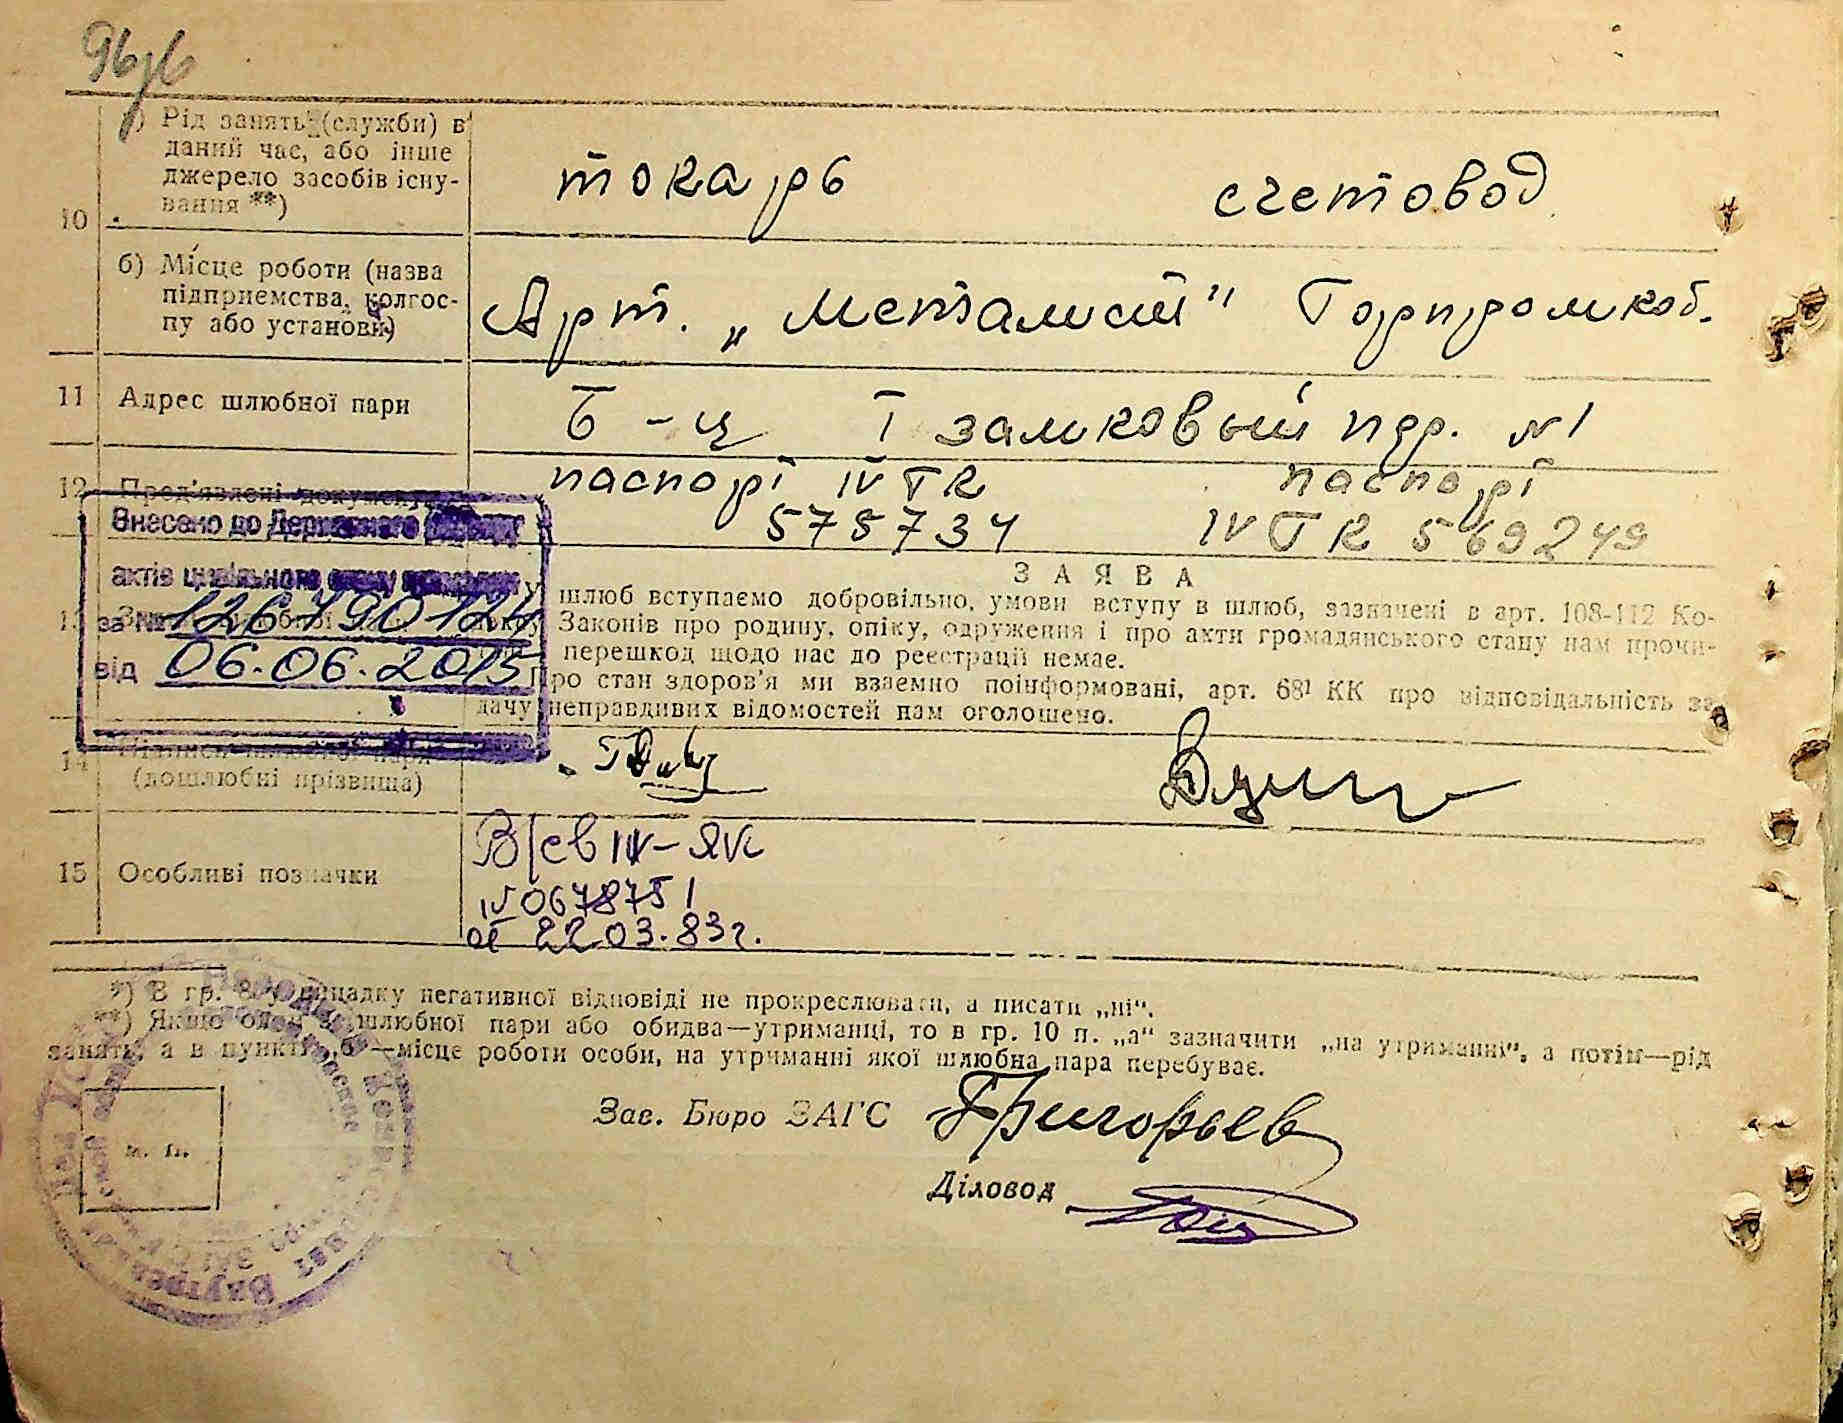 а) Рід занять (служби) в
даний час, або інше
джерело засобів існу-
вання **)
токарь счетовод
10
б) Місце роботи (назва
підприємства, колгос-
пу або установи)
Арт. „Металист" Горпромкоб.
11 Адрес шлюбної пари
Б-ц I замковый пер. №1
12 Пред'явлені документи
паспорт IV ТК 575734
паспорт IV ТК 569249
Внесено до Державного
актів цивільного стану
за № 12679012
від 06.06.2015
13
ЗАЯВА
У шлюб вступаємо добровільно, умови вступу в шлюб, зазначені в арт. 108-112 Ко-
Законів про родину, опіку, одруження і про акти громадянського стану нам прочи-
перешкод щодо нас до реєстрації немає.
Про стан здоров'я ми взаємно поінформовані, арт. 68¹ КК про відповідальність за
дачу неправдивих відомостей нам оголошено.
14 Підписи шлюбної пари
(дошлюбні прізвища)
15 Особливі позначки
№ 0678751
от 22.03.83г.
*) В гр. 8 у випадку негативної відповіді не прокреслювати, а писати „ні".
**) Якщо один з шлюбної пари або обидва—утриманці, то в гр. 10 п. „а" зазначити „на утриманні", а потім—рід
занять, а в пункті „б"—місце роботи особи, на утриманні якої шлюбна пара перебуває.
Зав. Бюро ЗАГС Григорьев
Діловод
м. п.